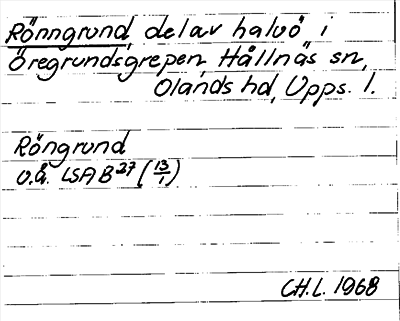 Rönngrund, del av halvö i
Öregrundsgrepen, Hållnäs sn,
Olands hd, Upps. l.
Röngrund
u.å. LSA B 27 (13/1)
CH.L. 1968